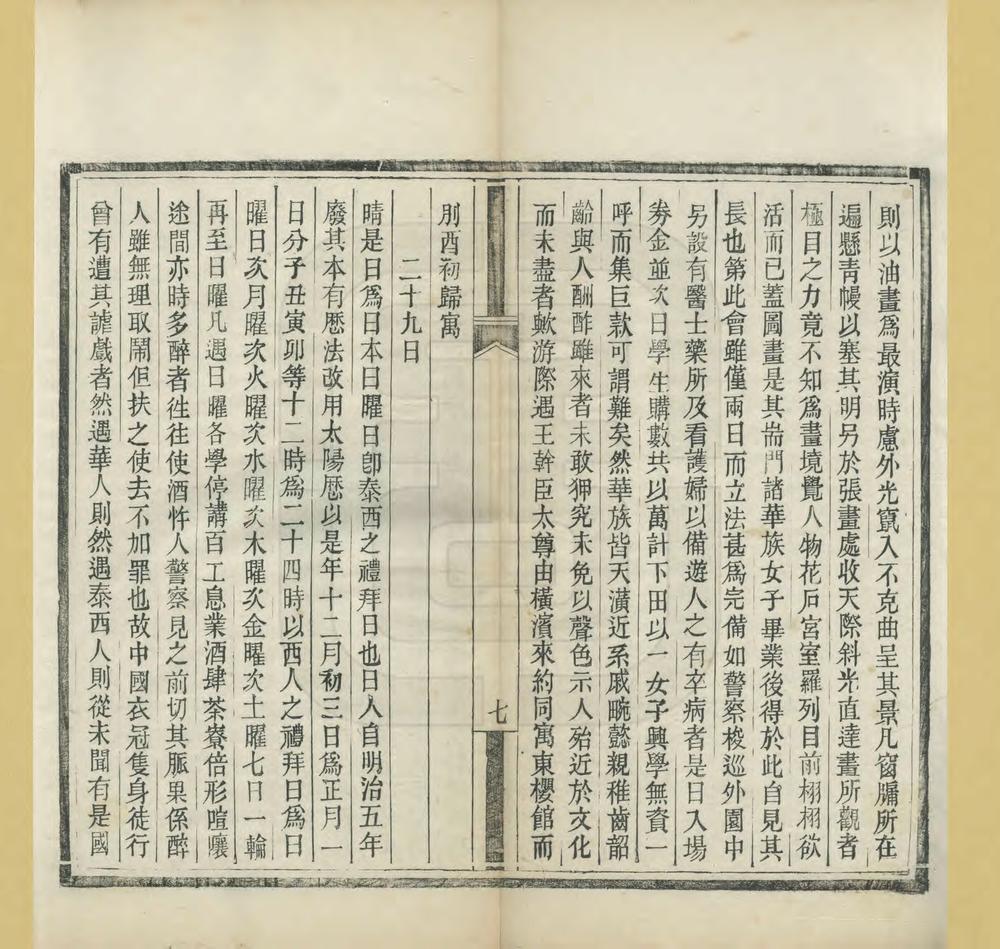 則以油畫爲最演時慮外光竄入不克曲呈其景凡窗牖所在
遍懸靑幔以塞其明另於張畫處收天際斜光直達畫所觀者
極目之力竟不知爲畫境覺人物花石宮室羅列目前栩栩欲
活而已蓋圖畫是其耑門諸華族女子畢業後得於此自見其
長也第此會雖僅兩日而立法甚爲完備如警察梭巡外園中
另設有醫士藥所及看護婦以備遊人之有卒病者是日入場
券金並次日學生購數共以萬計下田以一女子興學無資一
呼而集巨款可謂難矣然華族皆天潢近系戚畹懿親稚齒韶
齡與人酬酢雖來者未敢狎究未免以聲色示人殆近於文化
而未盡者歟游際遇王幹臣太尊由橫濱來約同寓東櫻館而
七
別酉初歸寓
二十九日
晴是日爲日本日曜日卽泰西之禮拜日也日人自明治五年
廢其本有歷法改用太陽歷以是年十二月初三日爲正月一
日分子丑寅卯等十二時爲二十四時以西人之禮拜日爲日
曜日次月曜次火曜次水曜次木曜次金曜次土曜七日一輪
再至日曜凡遇日曜各學停講百工息業酒肆茶寮倍形喧嚷
途間亦時多醉者徃徃使酒忤人警察見之前切其脈果係醉
人雖無理取鬧但扶之使去不加罪也故中國衣冠隻身徒行
曾有遭其謔戲者然遇華人則然遇泰西人則從未聞有是國